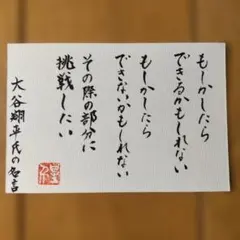 もしかしたら
できるかもしれない
もしかしたら
できないかもしれない
その際の部分に
挑戦したい
大谷翔平氏の名言